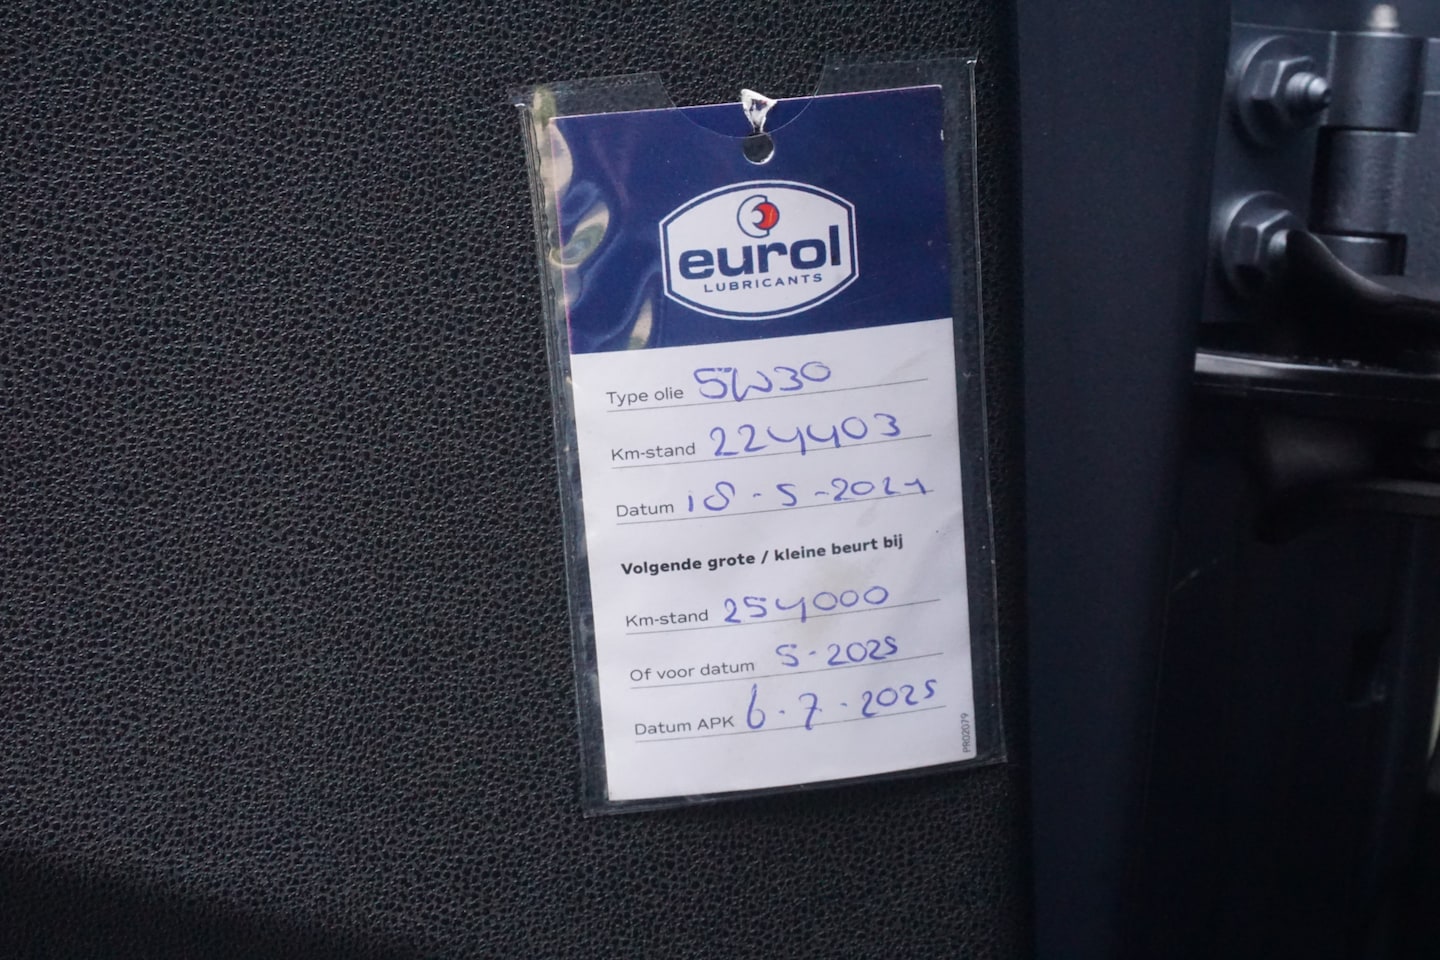 eurol
LUBRICANTS
Type olie 5W30
Km-stand 224403
Datum 18-5-2024
Volgende grote / kleine beurt bij
Km-stand 254000
Of voor datum 5-2025
Datum APK 6-7-2025
PR02079